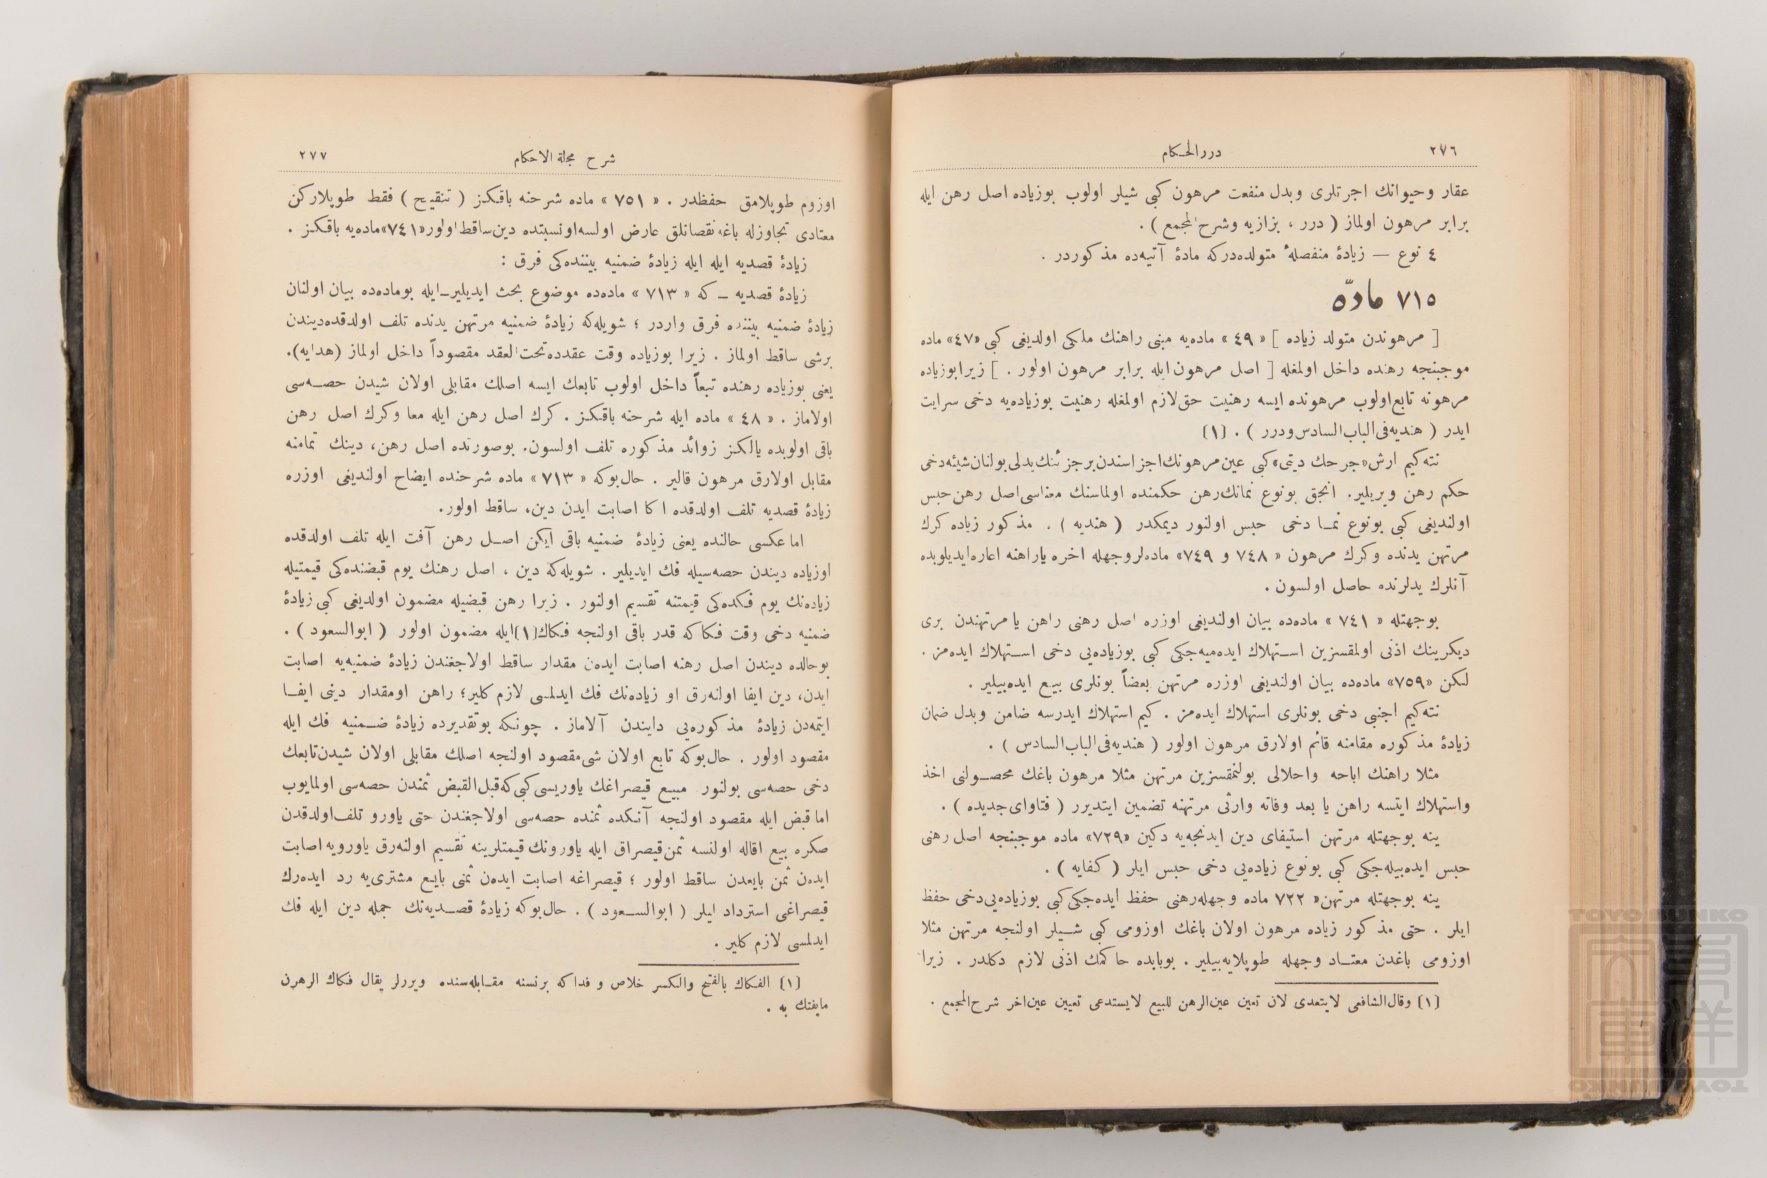 ٢٧٦
دررالحكام
عقار وحيوانك اجرتلرى وبدل منفعت مرهون كبى شيلر اولوب بوزياده اصل رهن ايله
برابر مرهون اولماز ( درر ، بزازيه وشرح المجمع ) .
٤ نوع — زيادۀ منفصلۀ متولده‌دركه مادۀ آتيه‌ده مذكوردر .
٧١٥ مادّه
[ مرهوندن متولد زياده ] « ٤٩ » ماده‌يه مبنى راهنك ملكى اولديغى كبى «٤٧» ماده
موجبنجه رهنده داخل اولمغله [ اصل مرهون ايله برابر مرهون اولور . ] زيرا بوزياده
مرهونه تابع اولوب مرهونده ايسه رهنيت حق لازم اولمغله رهنيت بوزياده‌يه دخى سرايت
ايدر ( هنديه فى الباب السادس ودرر ) . (١)
نته‌كيم ارش «جرحك ديتى» كبى عين مرهونك اجزاسندن برجزئنك بدلى بولنان شيئه دخى
حكم رهن ويريلير. انجق بونوع نمانك رهن حكمنده اولماسنك معناسى اصل رهن حبس
اولنديغى كبى بونوع نمـا دخى حبس اولنور ديمكدر ( هنديه ) . مذكور زياده كرك
مرتهن يدنده وكرك مرهون « ٧٤٨ و ٧٤٩» ماده‌لر وجهله اخره ياراهنه اعاره ايديلوبده
آنلرك يدلرنده حاصل اولسون .
بوجهتله « ٧٤١ » ماده‌ده بيان اولنديغى اوزره اصل رهنى راهن يا مرتهندن برى
ديكرينك اذنى اولمقسزين اسـتهلاك ايده‌ميه‌جكى كبى بوزياده‌يى دخى اسـتهلاك ايده‌مز .
لكن «٧٥٩» ماده‌ده بيان اولنديغى اوزره مرتهن بعضاً بونلرى بيـع ايده‌بيلير .
نته‌كيم اجنبى دخى بونلرى استهلاك ايده‌مز . كيم استهلاك ايدرسه ضامن وبدل ضمان
زيادۀ مذكوره مقامنه قائم اولارق مرهون اولور ( هنديه فى الباب السادس ) .
مثلا راهنك اباحه واحلالى بولنمقسزين مرتهن مثلا مرهون باغك محصـولنى اخذ
واستهلاك ايتسه راهن يا بعد وفاته وارثى مرتهنه تضمين ايتديرر ( فتاواى جديده ) .
ينه بوجهتله مرتهن استيفاى دين ايدنجه‌يه دكين «٧٢٩» ماده موجبنجه اصل رهنى
حبس ايده‌بيله‌جكى كبى بونوع زياده‌يى دخى حبس ايلر ( كفايه ) .
ينه بوجهتله مرتهن« ٧٢٢ ماده وجهله رهنى حفظ ايده‌جكى كبى بوزياده‌يى دخى حفظ
ايلر . حتى مذكور زياده مرهون اولان باغك اوزومى كبى شـيلر اولنجه مرتهن مثلا
اوزومى باغدن معتـاد وجهله طوپلايه‌بيلير . بوبابده حاكمك اذنى لازم دكلدر . زيرا
(١) وقال الشافعى لايتعدى لان تعين عين الرهن للبيع لايستدعى تعيين عين اخر شرح المجمع .
شرح مجلة الاحكام
٢٧٧
اوزوم طوپلامق حفظدر . « ٧٥١ » ماده شرحنه باقكز ( تنقيح ) فقط طوپلاركن
معتادى تجاوزله باغه نقصانلق عارض اولسه اونسبتده دين ساقط اولور«٧٤١»ماده‌يه باقكز .
زيادۀ قصديه ايله ايله زيادۀ ضمنيه بيننده‌كى فرق :
زيادۀ قصديه ــ كه « ٧١٣ » ماده‌ده موضوع بحث ايديلير ــ ايله بوماده‌ده بيان اولنان
زيادۀ ضمنيه بيننده فرق واردر ؛ شويله‌كه زيادۀ ضمنيه مرتهن يدنده تلف اولدقده‌ديندن
برشى ساقط اولماز . زيرا بوزياده وقت عقدده تحت العقد مقصوداً داخل اولماز (هدايه).
يعنى بوزياده رهنده تبعاً داخل اولوب تابعك ايسه اصلك مقابلى اولان شيدن حصـه‌سى
اولاماز . « ٤٨ » ماده ايله شرحنه باقكز . كرك اصل رهن ايله معا وكرك اصل رهن
باقى اولوبده يالكز زوائد مذكوره تلف اولسون. بوصورتده اصل رهن، دينك تمامنه
مقابل اولارق مرهون قالير . حال‌بوكه « ٧١٣ » ماده شرحنده ايضاح اولنديغى اوزره
زيادۀ قصديه تلف اولدقده اكا اصابت ايدن دين، ساقط اولور.
اما عكسى حالنده يعنى زيادۀ ضمنيه باقى ايكن اصـل رهن آفت ايله تلف اولدقده
اوزياده ديندن حصه‌سيله فك ايديلير . شويله‌كه دين ، اصل رهنك يوم قبضنده‌كى قيمتيله
زياده‌نك يوم فكده‌كى قيمتنه تقسيم اولنور . زيرا رهن قبضيله مضمون اولديغى كبى زيادۀ
ضمنيه دخى وقت فكاكه قدر باقى اولنجه فكاك(١)ايله مضمون اولور ( ابوالسعود ) .
بوحالده ديندن اصل رهنه اصابت ايدن مقدار ساقط اولاجغندن زيادۀ ضمنيه‌يه اصابت
ايدن، دين ايفا اولنه‌رق او زياده‌نك فك ايدلمسى لازم كلير؛ راهن اومقدار دينى ايفـا
ايتمه‌دن زيادۀ مذكوره‌يى دايندن آلاماز . چونكه بوتقديرده زيادۀ ضـمنيه فك ايله
مقصود اولور . حال‌بوكه تابع اولان شى مقصود اولنجه اصلك مقابلى اولان شيدن تابعك
دخى حصه‌سى بولنور مبيع قيصراغك ياوريسى كبى كه قبل القبض ثمندن حصه‌سى اولمايوب
اما قبض ايله مقصود اولنجه آنكده ثمنده حصه‌سى اولاجغندن حتى ياورو تلف اولدقدن
صكره بيع اقاله اولنسه ثمن قيصراق ايله ياورونك قيمتلرينه تقسيم اولنه‌رق ياورويه اصابت
ايدن ثمن بايعدن ساقط اولور ؛ قيصراغه اصابت ايدن ثمنى بايـع مشترى‌يه رد ايده‌رك
قيصراغى استرداد ايلر ( ابوالسـعود ) . حال‌بوكه زيادۀ قصـديه‌نك جمله دين ايله فك
ايدلمسى لازم كلير .
(١) الفكاك بالفتح والكسر خلاص و فداكه برنسنه مقـابله‌سنده ويررلر يقال فكاك الرهن
مايفتك به .
TOYO BUNKO
TOYO BUNKO